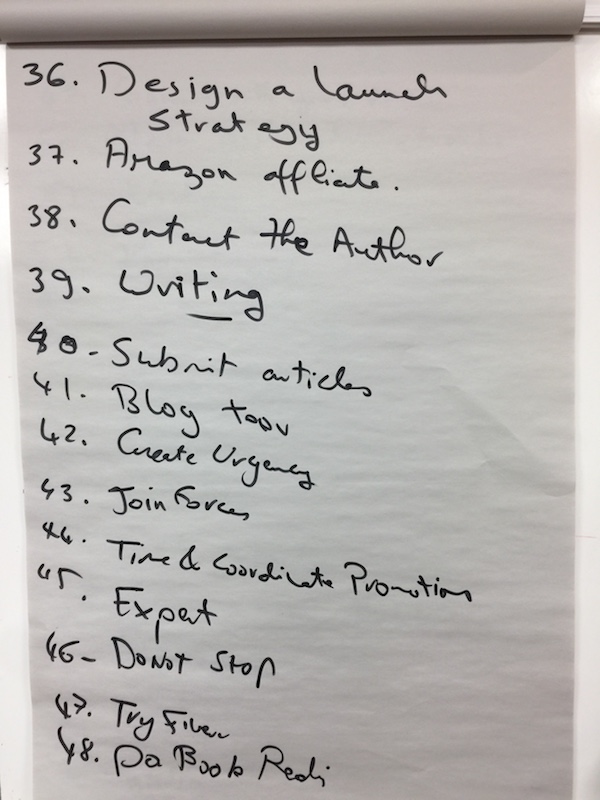 36. Design a Launch
Strategy
37. Amazon affliate.
38. Contact the Author
39. Writing
40- Submit articles
41. Blog tour
42. Create Urgency
43. Join Forces
44. Time & Coordinate Promotions
45. Expert
46- Do Not Stop
47. Try Fiverr
48. Book